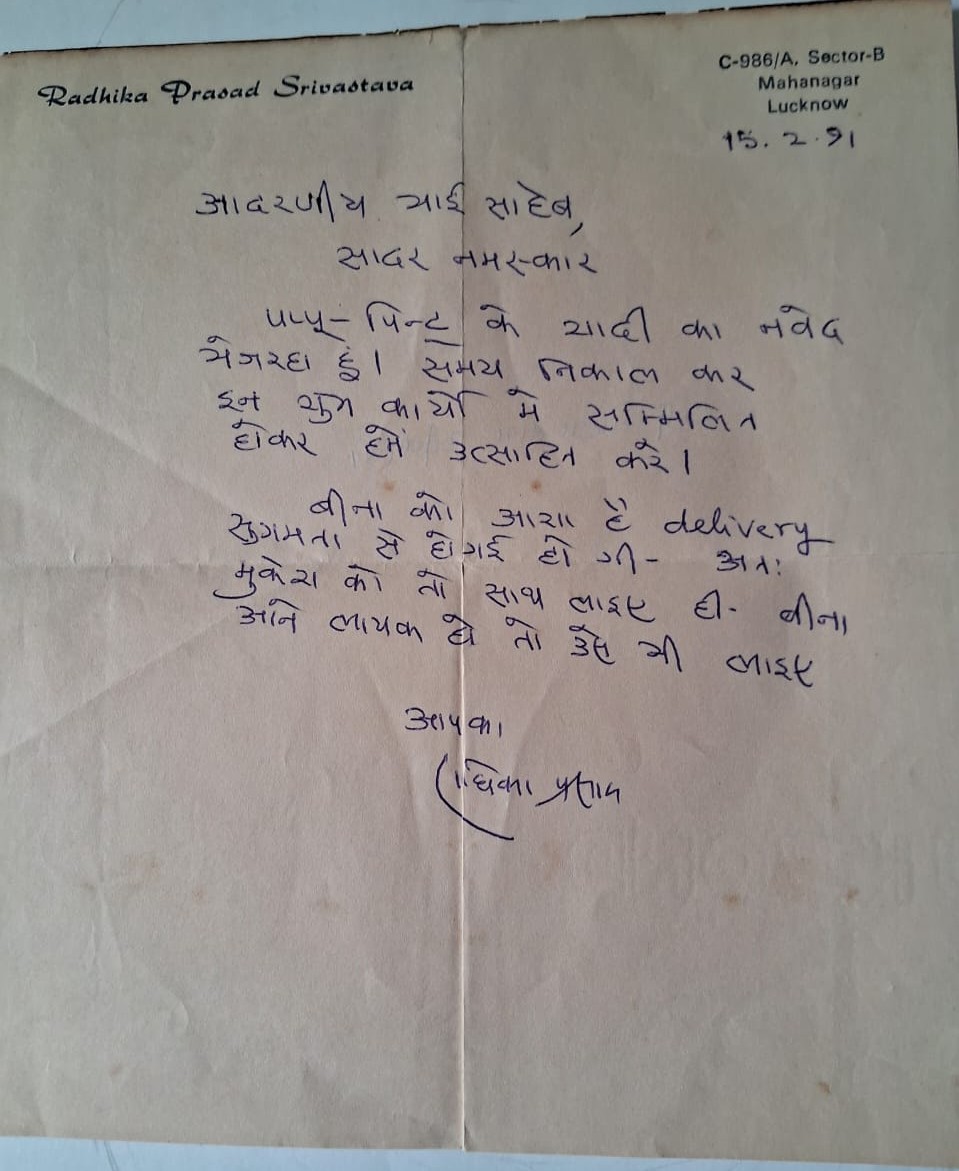 Radhika Prasad Srivastava
C-986/A, Sector-B
Mahanagar
Lucknow
15.2.91
आदरणीय भाई साहेब,
सादर नमस्कार
पप्पू - पिन्टू के शादी का नवेद
भेज रहा हूं। समय निकाल कर
इन शुभ कार्यो मे सम्मिलित
होकर हमें उत्साहित करे।
बीना को आशा है delivery
सुगमता से हो गई हो गी - अतः
मुकेश को तो साथ लाइए ही - बीना
आने लायक हो तो उसे भी लाइए
आपका
राधिका प्रसाद